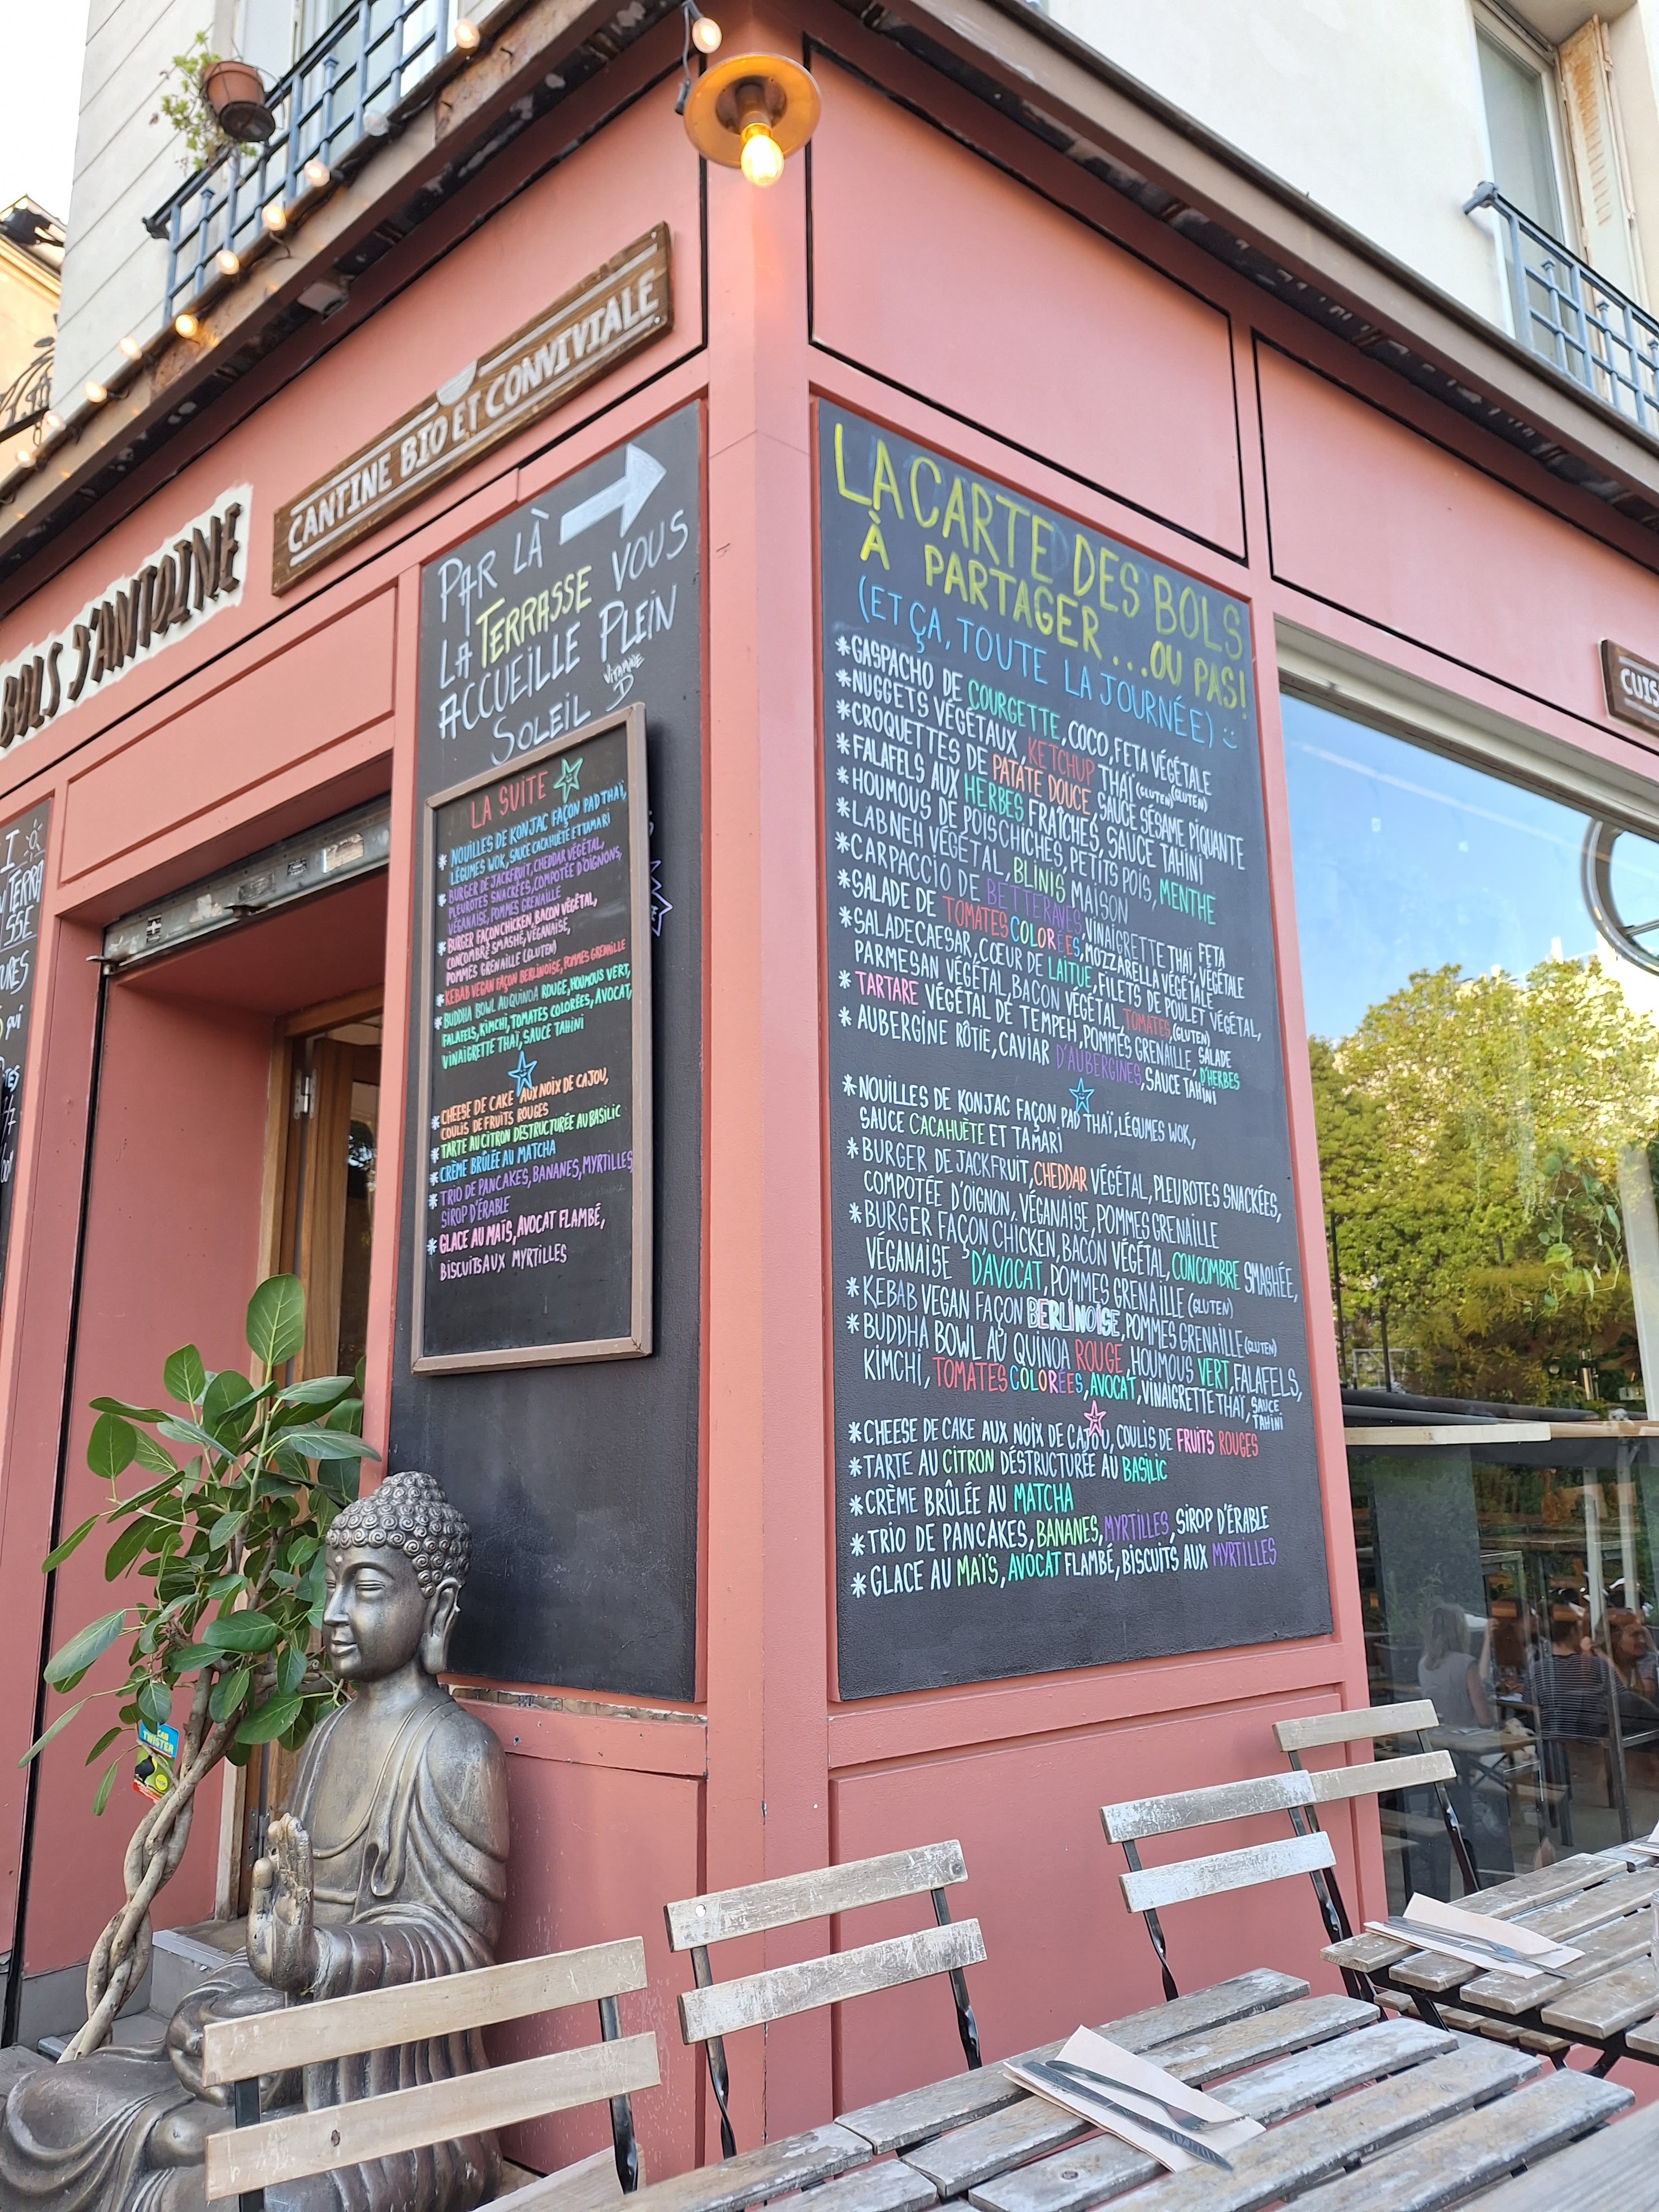 BOLS D'ANTOINE
CANTINE BIO ET CONVIVIALE
PAR LÀ
LA TERRASSE VOUS
ACCUEILLE PLEIN
SOLEIL
VITAMINE
D
LA SUITE
* NOUILLES DE KONJAC FAÇON PAD THAÏ,
LÉGUMES WOK, SAUCE CACAHUÈTE ET TAMARI
* BURGER DE JACKFRUIT, CHEDDAR VÉGÉTAL,
PLEUROTES SNACKÉES, COMPOTÉE D'OIGNONS,
VÉGANAISE, POMMES GRENAILLE
* BURGER FAÇON CHICKEN, BACON VÉGÉTAL,
CONCOMBRE SMASHÉ, VÉGANAISE,
POMMES GRENAILLE (GLUTEN)
* KEBAB VEGAN FAÇON BERLINOISE, POMMES GRENAILLE
* BUDDHA BOWL AU QUINOA ROUGE, HOUMOUS VERT,
FALAFELS, KIMCHI, TOMATES COLORÉES, AVOCAT,
VINAIGRETTE THAÏ, SAUCE TAHINI
* CHEESE DE CAKE AUX NOIX DE CAJOU,
COULIS DE FRUITS ROUGES
* TARTE AU CITRON DESTRUCTURÉE AU BASILIC
* CRÈME BRÛLÉE AU MATCHA
* TRIO DE PANCAKES, BANANES, MYRTILLES,
SIROP D'ÉRABLE
* GLACE AU MAÏS, AVOCAT FLAMBÉ,
BISCUITS AUX MYRTILLES
LA CARTE DES BOLS
À PARTAGER ... OU PAS!
(ET ÇA, TOUTE LA JOURNÉE)
* GASPACHO DE COURGETTE, COCO, FETA VÉGÉTALE
* NUGGETS VÉGÉTAUX, KETCHUP THAÏ (GLUTEN)
* CROQUETTES DE PATATE DOUCE, SAUCE SÉSAME PIQUANTE (GLUTEN)
* FALAFELS AUX HERBES FRAÎCHES, SAUCE TAHINI
* HOUMOUS DE POIS CHICHES, PETITS POIS, MENTHE
* LABNEH VÉGÉTAL, BLINIS MAISON
* CARPACCIO DE BETTERAVES, VINAIGRETTE THAÏ, FETA VÉGÉTALE
* SALADE DE TOMATES COLORÉES, MOZZARELLA VÉGÉTALE
* SALADE CAESAR, CŒUR DE LAITUE, FILETS DE POULET VÉGÉTAL,
PARMESAN VÉGÉTAL, BACON VÉGÉTAL, TOMATES (GLUTEN)
* TARTARE VÉGÉTAL DE TEMPEH, POMMES GRENAILLE, SALADE D'HERBES
* AUBERGINE RÔTIE, CAVIAR D'AUBERGINES, SAUCE TAHINI
* NOUILLES DE KONJAC FAÇON PAD THAÏ, LÉGUMES WOK,
SAUCE CACAHUÈTE ET TAMARI
* BURGER DE JACKFRUIT, CHEDDAR VÉGÉTAL, PLEUROTES SNACKÉES,
COMPOTÉE D'OIGNON, VÉGANAISE, POMMES GRENAILLE
* BURGER FAÇON CHICKEN, BACON VÉGÉTAL, CONCOMBRE SMASHÉE,
VÉGANAISE D'AVOCAT, POMMES GRENAILLE (GLUTEN)
* KEBAB VEGAN FAÇON BERLINOISE, POMMES GRENAILLE (GLUTEN)
* BUDDHA BOWL AU QUINOA ROUGE, HOUMOUS VERT, FALAFELS,
KIMCHI, TOMATES COLORÉES, AVOCAT, VINAIGRETTE THAÏ, SAUCE TAHINI
* CHEESE DE CAKE AUX NOIX DE CAJOU, COULIS DE FRUITS ROUGES
* TARTE AU CITRON DÉSTRUCTURÉE AU BASILIC
* CRÈME BRÛLÉE AU MATCHA
* TRIO DE PANCAKES, BANANES, MYRTILLES, SIROP D'ÉRABLE
* GLACE AU MAÏS, AVOCAT FLAMBÉ, BISCUITS AUX MYRTILLES
CUIS
TWISTER